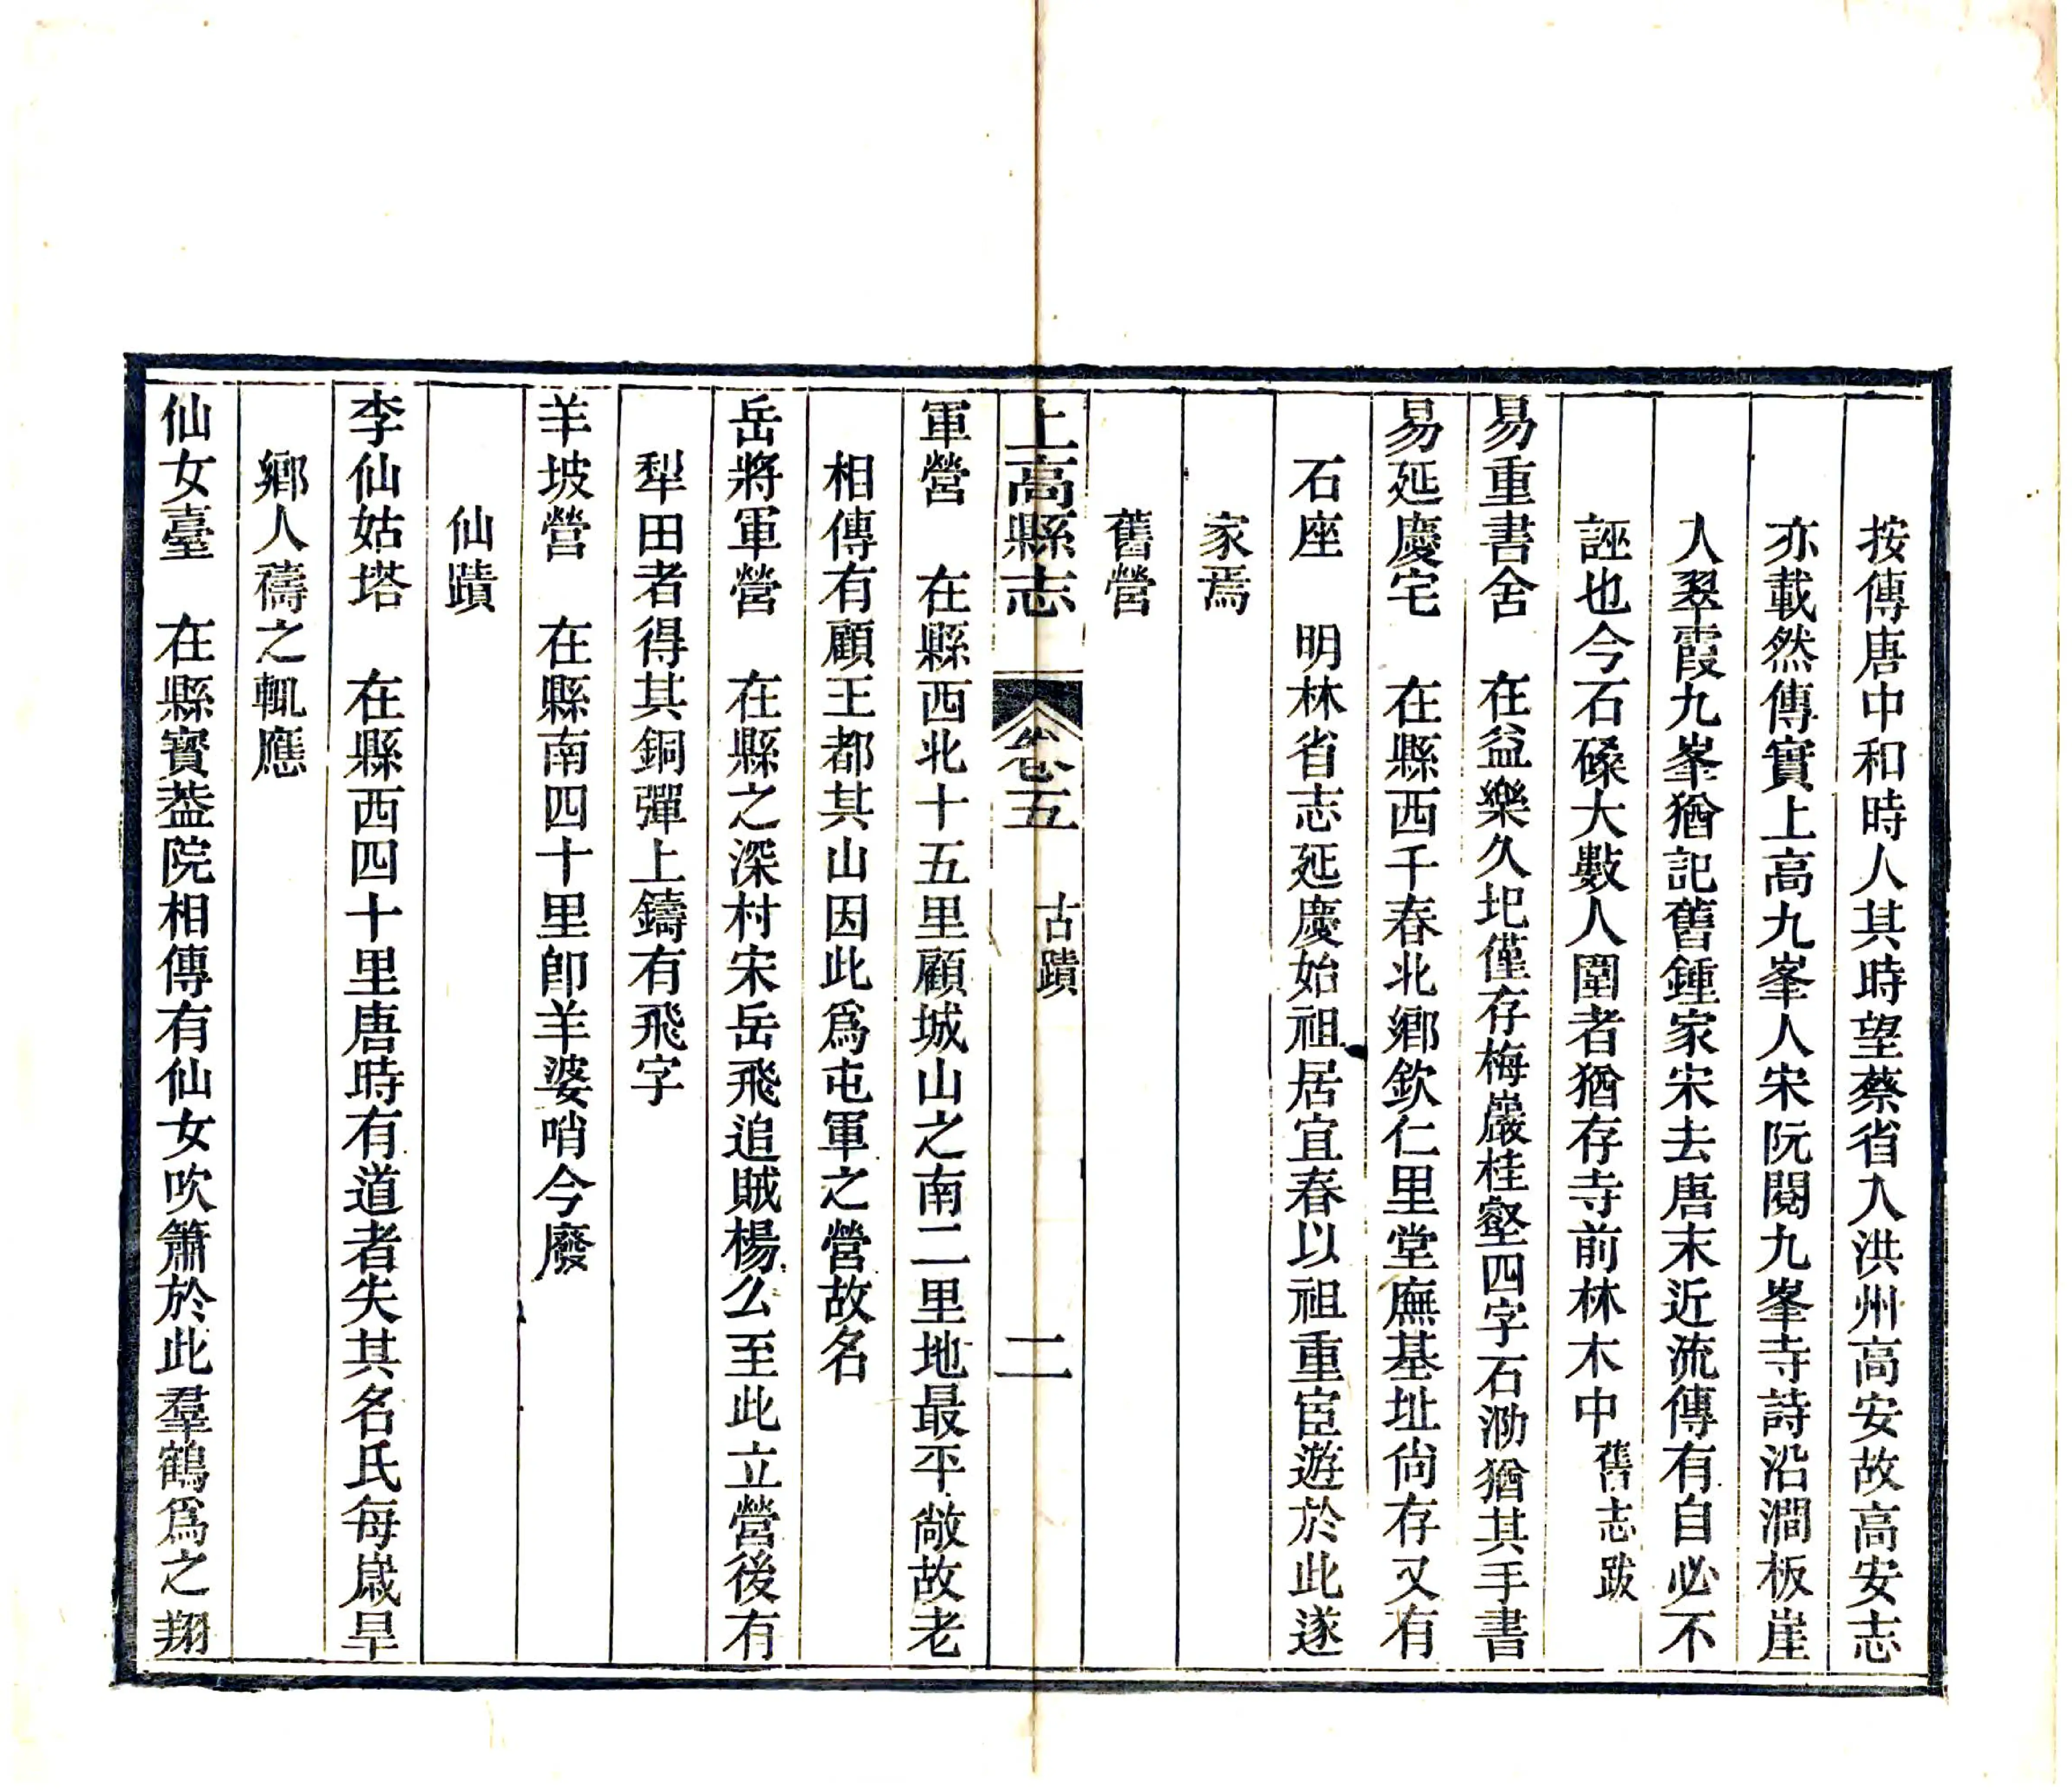 按傳唐中和時人其時望蔡省入洪州高安故高安志
亦載然傳實上高九峯人宋阮閱九峯寺詩沿澗板崖
人翠霞九峯猶記舊鍾家宋去唐末近流傳有自必不
誣也今石磉大數人圍者猶存寺前林木中舊志跋
易重書舍　在益樂久圯僅存梅巖桂壑四字石泐猶其手書
易延慶宅　在縣西千春北鄉欽仁里堂廡基址尙存又有
石座　明林省志延慶始祖居宜春以祖重宦遊於此遂
家焉
舊營
上高縣志　卷五　古蹟　二
軍營　在縣西北十五里顧城山之南二里地最平敞故老
相傳有顧王都其山因此爲屯軍之營故名
岳將軍營　在縣之深村宋岳飛追賊楊么至此立營後有
犁田者得其銅彈上鑄有飛字
羊坡營　在縣南四十里卽羊婆哨今廢
仙蹟
李仙姑塔　在縣西四十里唐時有道者失其名氏每歲旱
鄉人禱之輒應
仙女臺　在縣寶葢院相傳有仙女吹簫於此羣鶴爲之翔